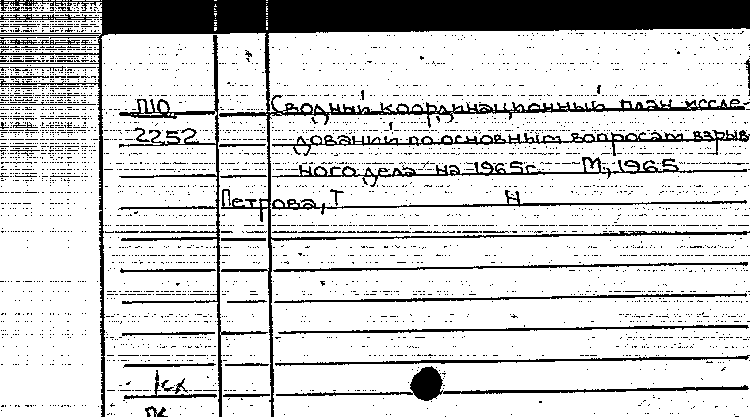 П10 Сводный координационный план иссле-
2252 дований по основным вопросам взрыв
ного дела на 1965г. М., 1965
Петрова, Т Н
1сх